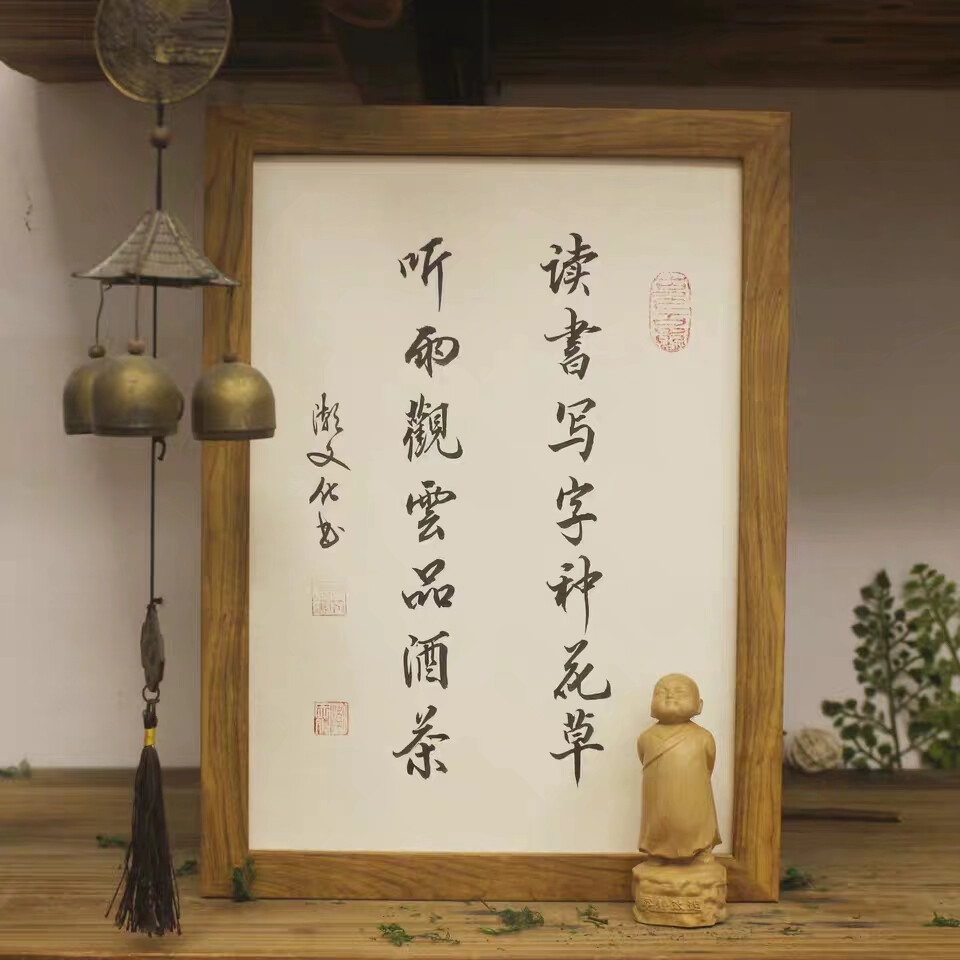 读书写字种花草
听雨觀雲品酒茶
文化书